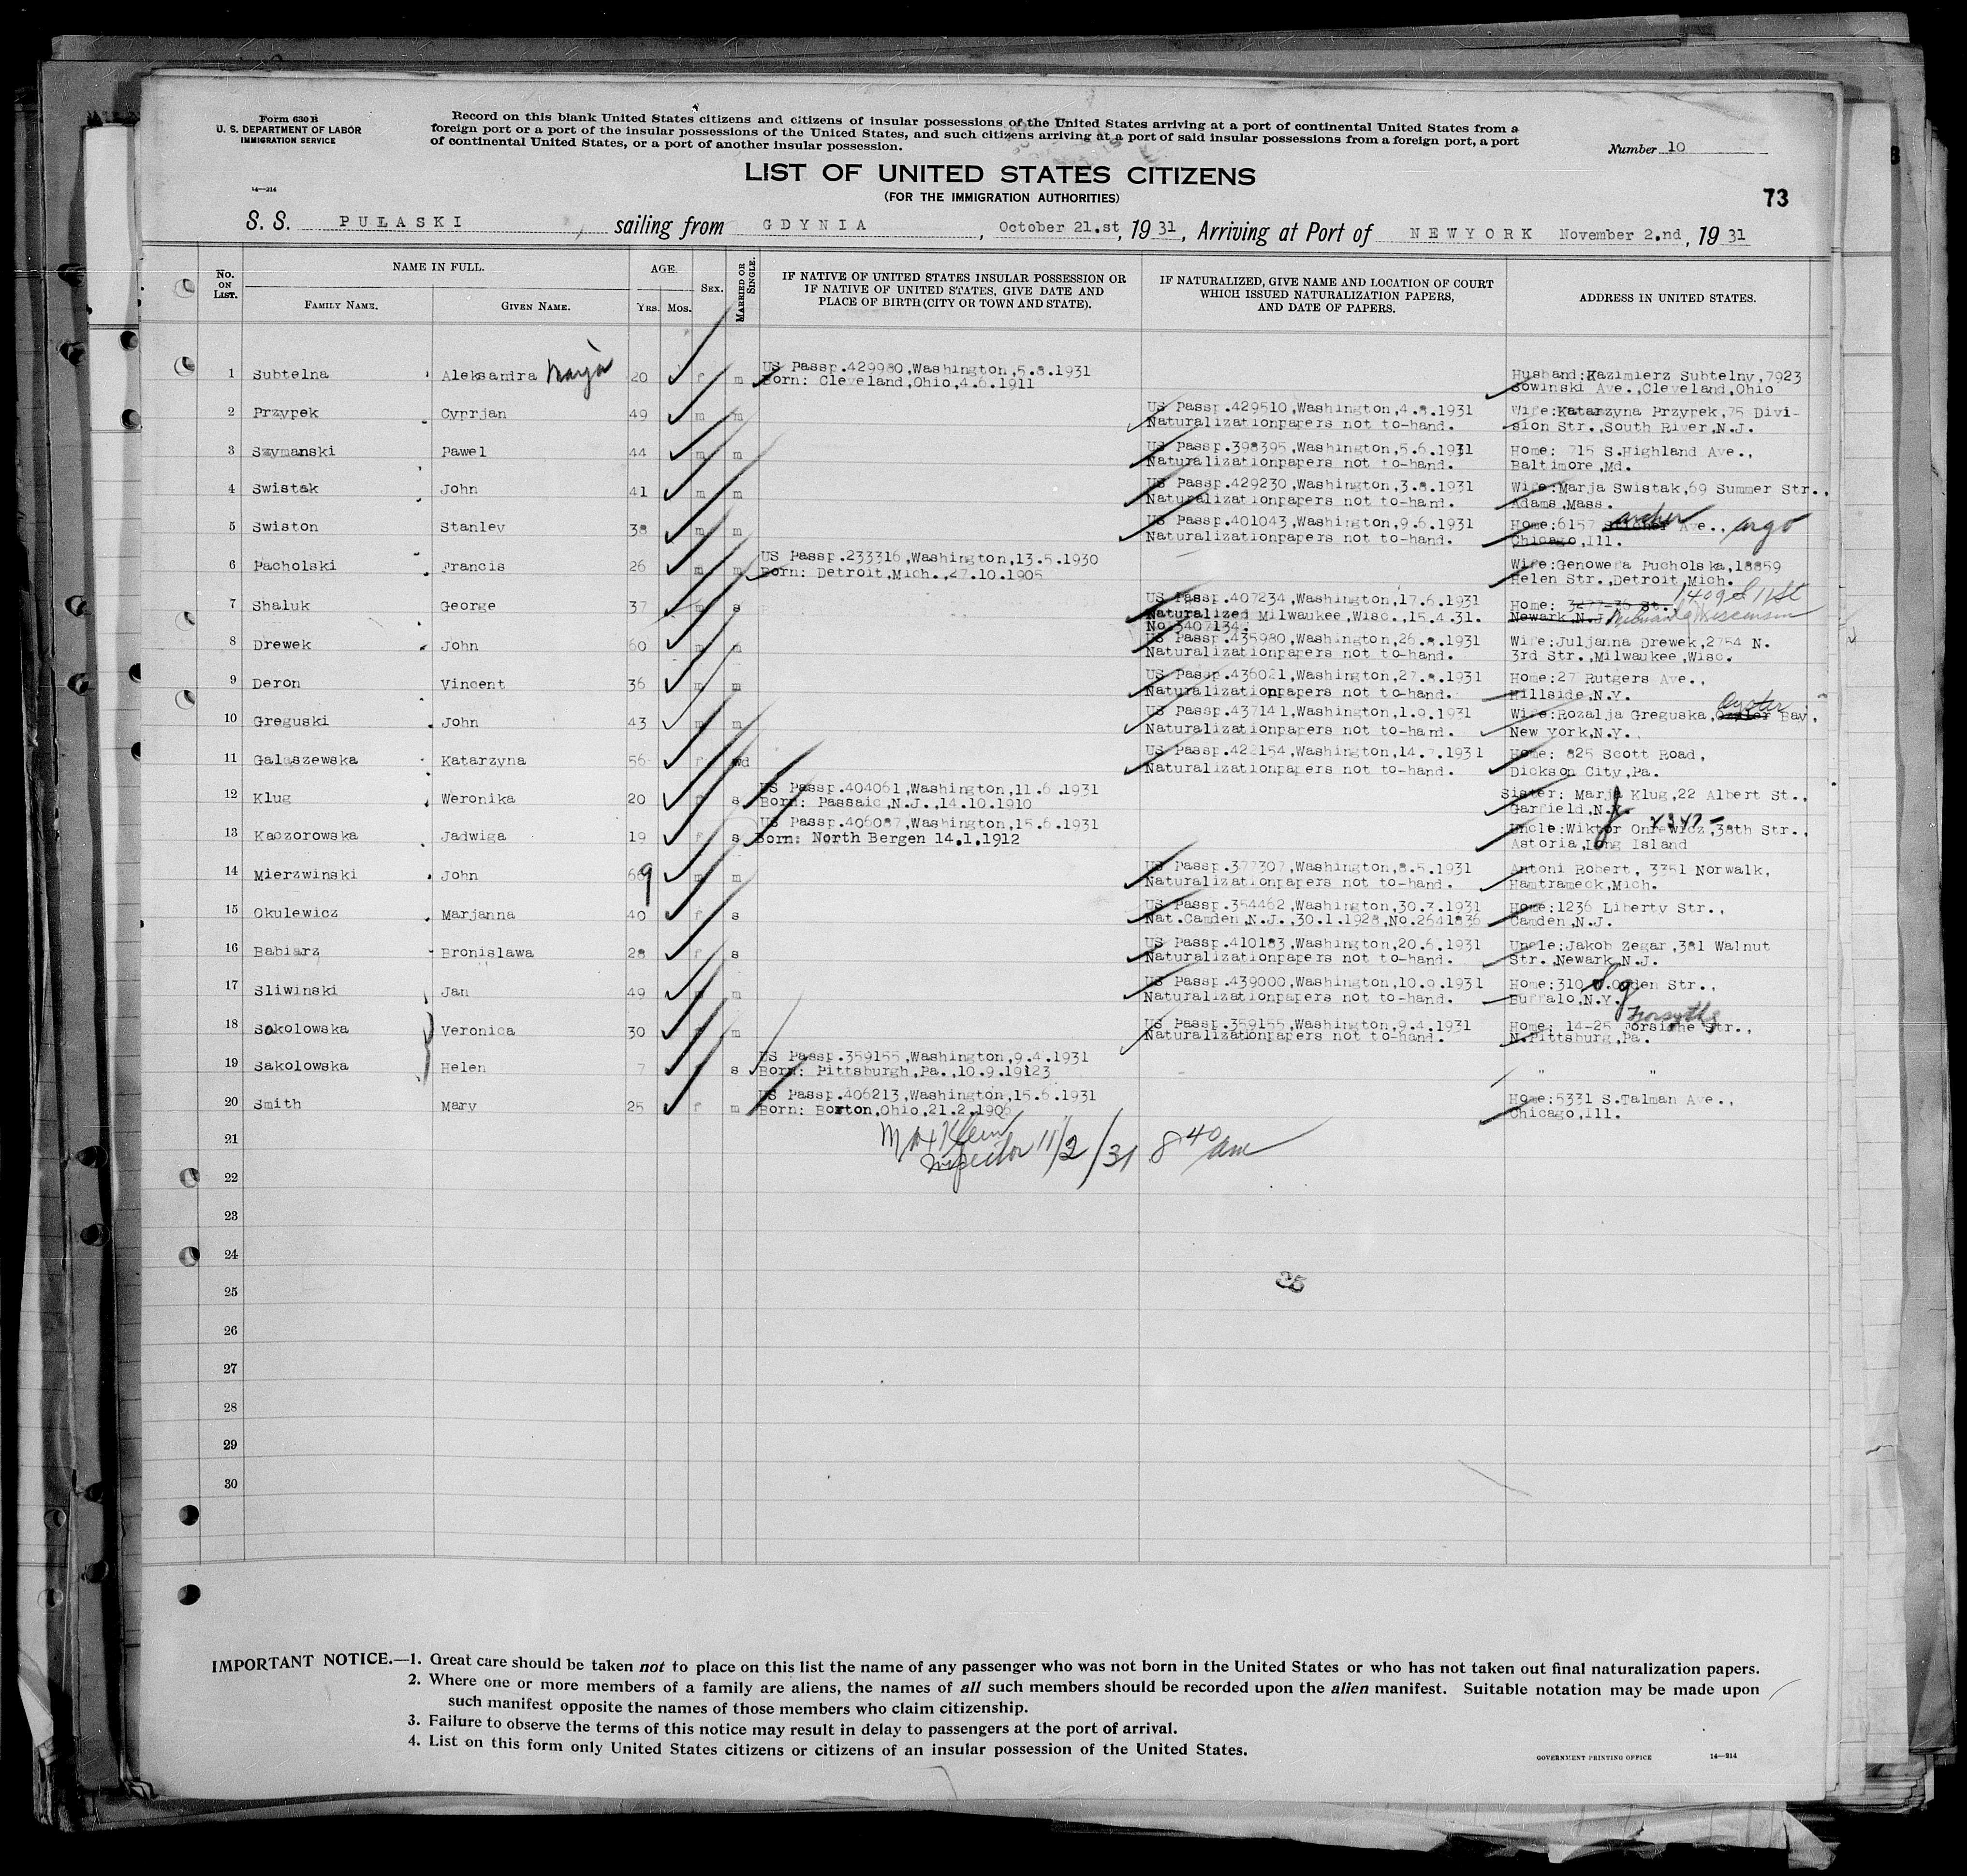 Form 630 B
U. S. DEPARTMENT OF LABOR
IMMIGRATION SERVICE
14—214
Record on this blank United States citizens and citizens of insular possessions of the United States arriving at a port of continental United States from a
foreign port or a port of the insular possessions of the United States, and such citizens arriving at a port of said insular possessions from a foreign port, a port
of continental United States, or a port of another insular possession.
Number 10
LIST OF UNITED STATES CITIZENS
(FOR THE IMMIGRATION AUTHORITIES)
73
S. S. PUŁASKI sailing from GDYNIA, October 21.st, 1931, Arriving at Port of NEWYORK November 2.nd, 1931
No. ON LIST.
NAME IN FULL.
FAMILY NAME.
GIVEN NAME.
AGE.
YRS. MOS.
SEX.
MARRIED OR SINGLE.
IF NATIVE OF UNITED STATES INSULAR POSSESSION OR
IF NATIVE OF UNITED STATES, GIVE DATE AND
PLACE OF BIRTH (CITY OR TOWN AND STATE).
IF NATURALIZED, GIVE NAME AND LOCATION OF COURT
WHICH ISSUED NATURALIZATION PAPERS,
AND DATE OF PAPERS.
ADDRESS IN UNITED STATES.
1 Subtelna Aleksandra Marja 20 f m US Passp.429980,Washington,5.8.1931
Born: Cleveland,Ohio,4.6.1911
Husband:Kazimierz Subtelny,7923
Sowinski Ave.,Cleveland,Ohio
2 Przypek Cyprjan 49 m m US Passp.429510,Washington,4.8.1931
Naturalizationpapers not to-hand.
Wife:Katarzyna Przypek,75 Divi-
sion Str.,South River,N.J.
3 Szymanski Pawel 44 m m US Passp.398395,Washington,5.6.1931
Naturalizationpapers not to-hand.
Home: 715 S.Highland Ave.,
Baltimore,Md.
4 Swistak John 41 m m US Passp.429230,Washington,3.8.1931
Naturalizationpapers not to-hand.
Wife:Marja Swistak,69 Summer Str.,
Adams,Mass.
5 Swiston Stanley 38 m m US Passp.401043,Washington,9.6.1931
Naturalizationpapers not to-hand.
Home:6157 archer Ave., argo
Chicago,Ill.
6 Pacholski Francis 26 m m US Passp.233316,Washington,13.5.1930
Born: Detroit,Mich.,27.10.1905
Wife:Genowefa Pucholska,18859
Helen Str.,Detroit,Mich.
7 Shaluk George 37 m s US Passp.407234,Washington,17.6.1931
Naturalized Milwaukee,Wisc.,15.4.31.
No.3407134.
Home: 3277-36 St. 1409 S 11 St
Newark,N.J. Wisconsin
8 Drewek John 60 m m US Passp.435980,Washington,26.8.1931
Naturalizationpapers not to-hand.
Wife:Juljanna Drewek,2754 N.
3rd Str.,Milwaukee,Wisc.
9 Deron Vincent 36 m m US Passp.436021,Washington,27.8.1931
Naturalizationpapers not to-hand.
Home:27 Rutgers Ave.,
Hillside,N.Y.
10 Greguski John 43 m m US Passp.437141,Washington,1.9.1931
Naturalizationpapers not to-hand.
Wife:Rozalja Greguska, Oyster Bay,
New York,N.Y.
11 Galaszewska Katarzyna 56 f wd US Passp.422154,Washington,14.7.1931
Naturalizationpapers not to-hand.
Home: 825 Scott Road,
Dickson City,Pa.
12 Klug Weronika 20 f s US Passp.404061,Washington,11.6.1931
Born: Passaic,N.J.,14.10.1910
Sister: Marja Klug,22 Albert St.,
Garfield,N.J.
13 Kaczorowska Jadwiga 19 f s US Passp.406087,Washington,15.6.1931
Born: North Bergen 14.1.1912
Uncle:Wiktor Onrewicz,38th Str.,
Astoria,Long Island
14 Mierzwinski John 69 m m US Passp.377307,Washington,8.5.1931
Naturalizationpapers not to-hand.
Antoni Robert, 3351 Norwalk,
Hamtrameck,Mich.
15 Okulewicz Marjanna 40 f s US Passp.354462,Washington,30.3.1931
Nat.Camden,N.J.,30.1.1928,No.2641836
Home:1236 Liberty Str.,
Camden,N.J.
16 Babiarz Bronislawa 28 f s US Passp.410183,Washington,20.6.1931
Naturalizationpapers not to-hand.
Uncle:Jakob Zegar,381 Walnut
Str.,Newark,N.J.
17 Sliwinski Jan 49 m m US Passp.439000,Washington,10.9.1931
Naturalizationpapers not to-hand.
Home:310 S.Ogden Str.,
Buffalo,N.Y.
18 Sokolowska Veronica 30 f m US Passp.359155,Washington,9.4.1931
Naturalizationpapers not to-hand.
Forsythe
Home: 14-25 Forsithe Str.,
N.Pittsburg,Pa.
19 Sakolowska Helen 7 f s US Passp.359155,Washington,9.4.1931
Born: Pittsburgh,Pa.,10.9.19123
" "
20 Smith Mary 25 f m US Passp.406213,Washington,15.6.1931
Born: Borton,Ohio,21.2.1906
Home:5331 S.Talman Ave.,
Chicago,Ill.
21
Max Klein
Inspector 11/2/31 8 40 am
22
23
24
25
26
27
28
29
30
IMPORTANT NOTICE.—1. Great care should be taken not to place on this list the name of any passenger who was not born in the United States or who has not taken out final naturalization papers.
2. Where one or more members of a family are aliens, the names of all such members should be recorded upon the alien manifest. Suitable notation may be made upon
such manifest opposite the names of those members who claim citizenship.
3. Failure to observe the terms of this notice may result in delay to passengers at the port of arrival.
4. List on this form only United States citizens or citizens of an insular possession of the United States.
GOVERNMENT PRINTING OFFICE 14—214